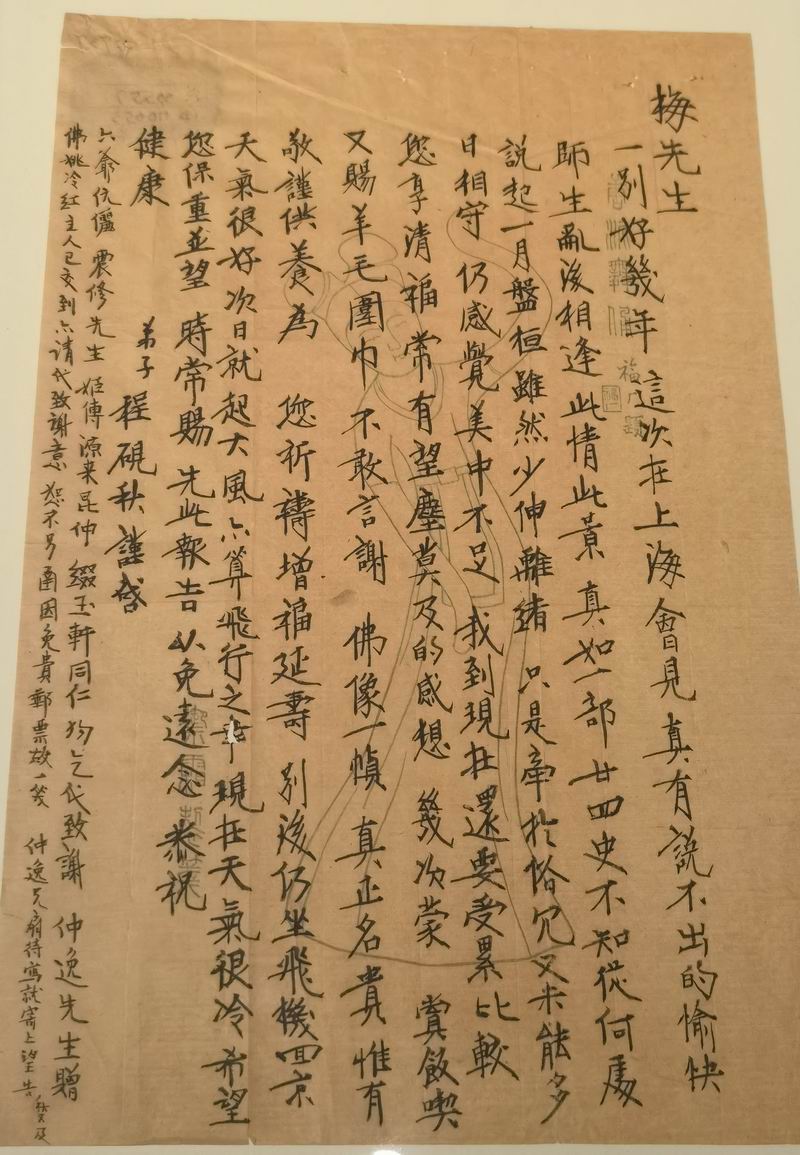 梅先生
一别好幾年 這次在上海會見 真有說不出的愉快
師生亂後相逢 此情此景 真如一部廿四史不知從何處
說起一月盤桓雖然少伸離緒 只是牽於俗冗又未能多
日相守 仍感覺美中不足 我到現在還要受累比較
您享清福常有望塵莫及的感想 幾次蒙 賞飯喫
又賜羊毛圍巾 不敢言謝 佛像一幀 真正名貴 惟有
敬謹供養為 您祈禱增福延壽 别後仍坐飛機回京
天氣很好次日就起大風 亦算飛行之幸 現在天氣很冷 希望
您保重並望 時常賜 先此報告以免遠念 恭祝
健康
弟子 程硯秋謹啓
六爺伉儷 震修先生 姬傳源來昆仲 綴玉軒同仁均乞代致謝 仲逸先生贈
佛姚冷紅主人已交到亦請代致謝意 恕不另函因免貴郵票故一笑 仲逸兄扇待寫就寄上望告 秋又及
福